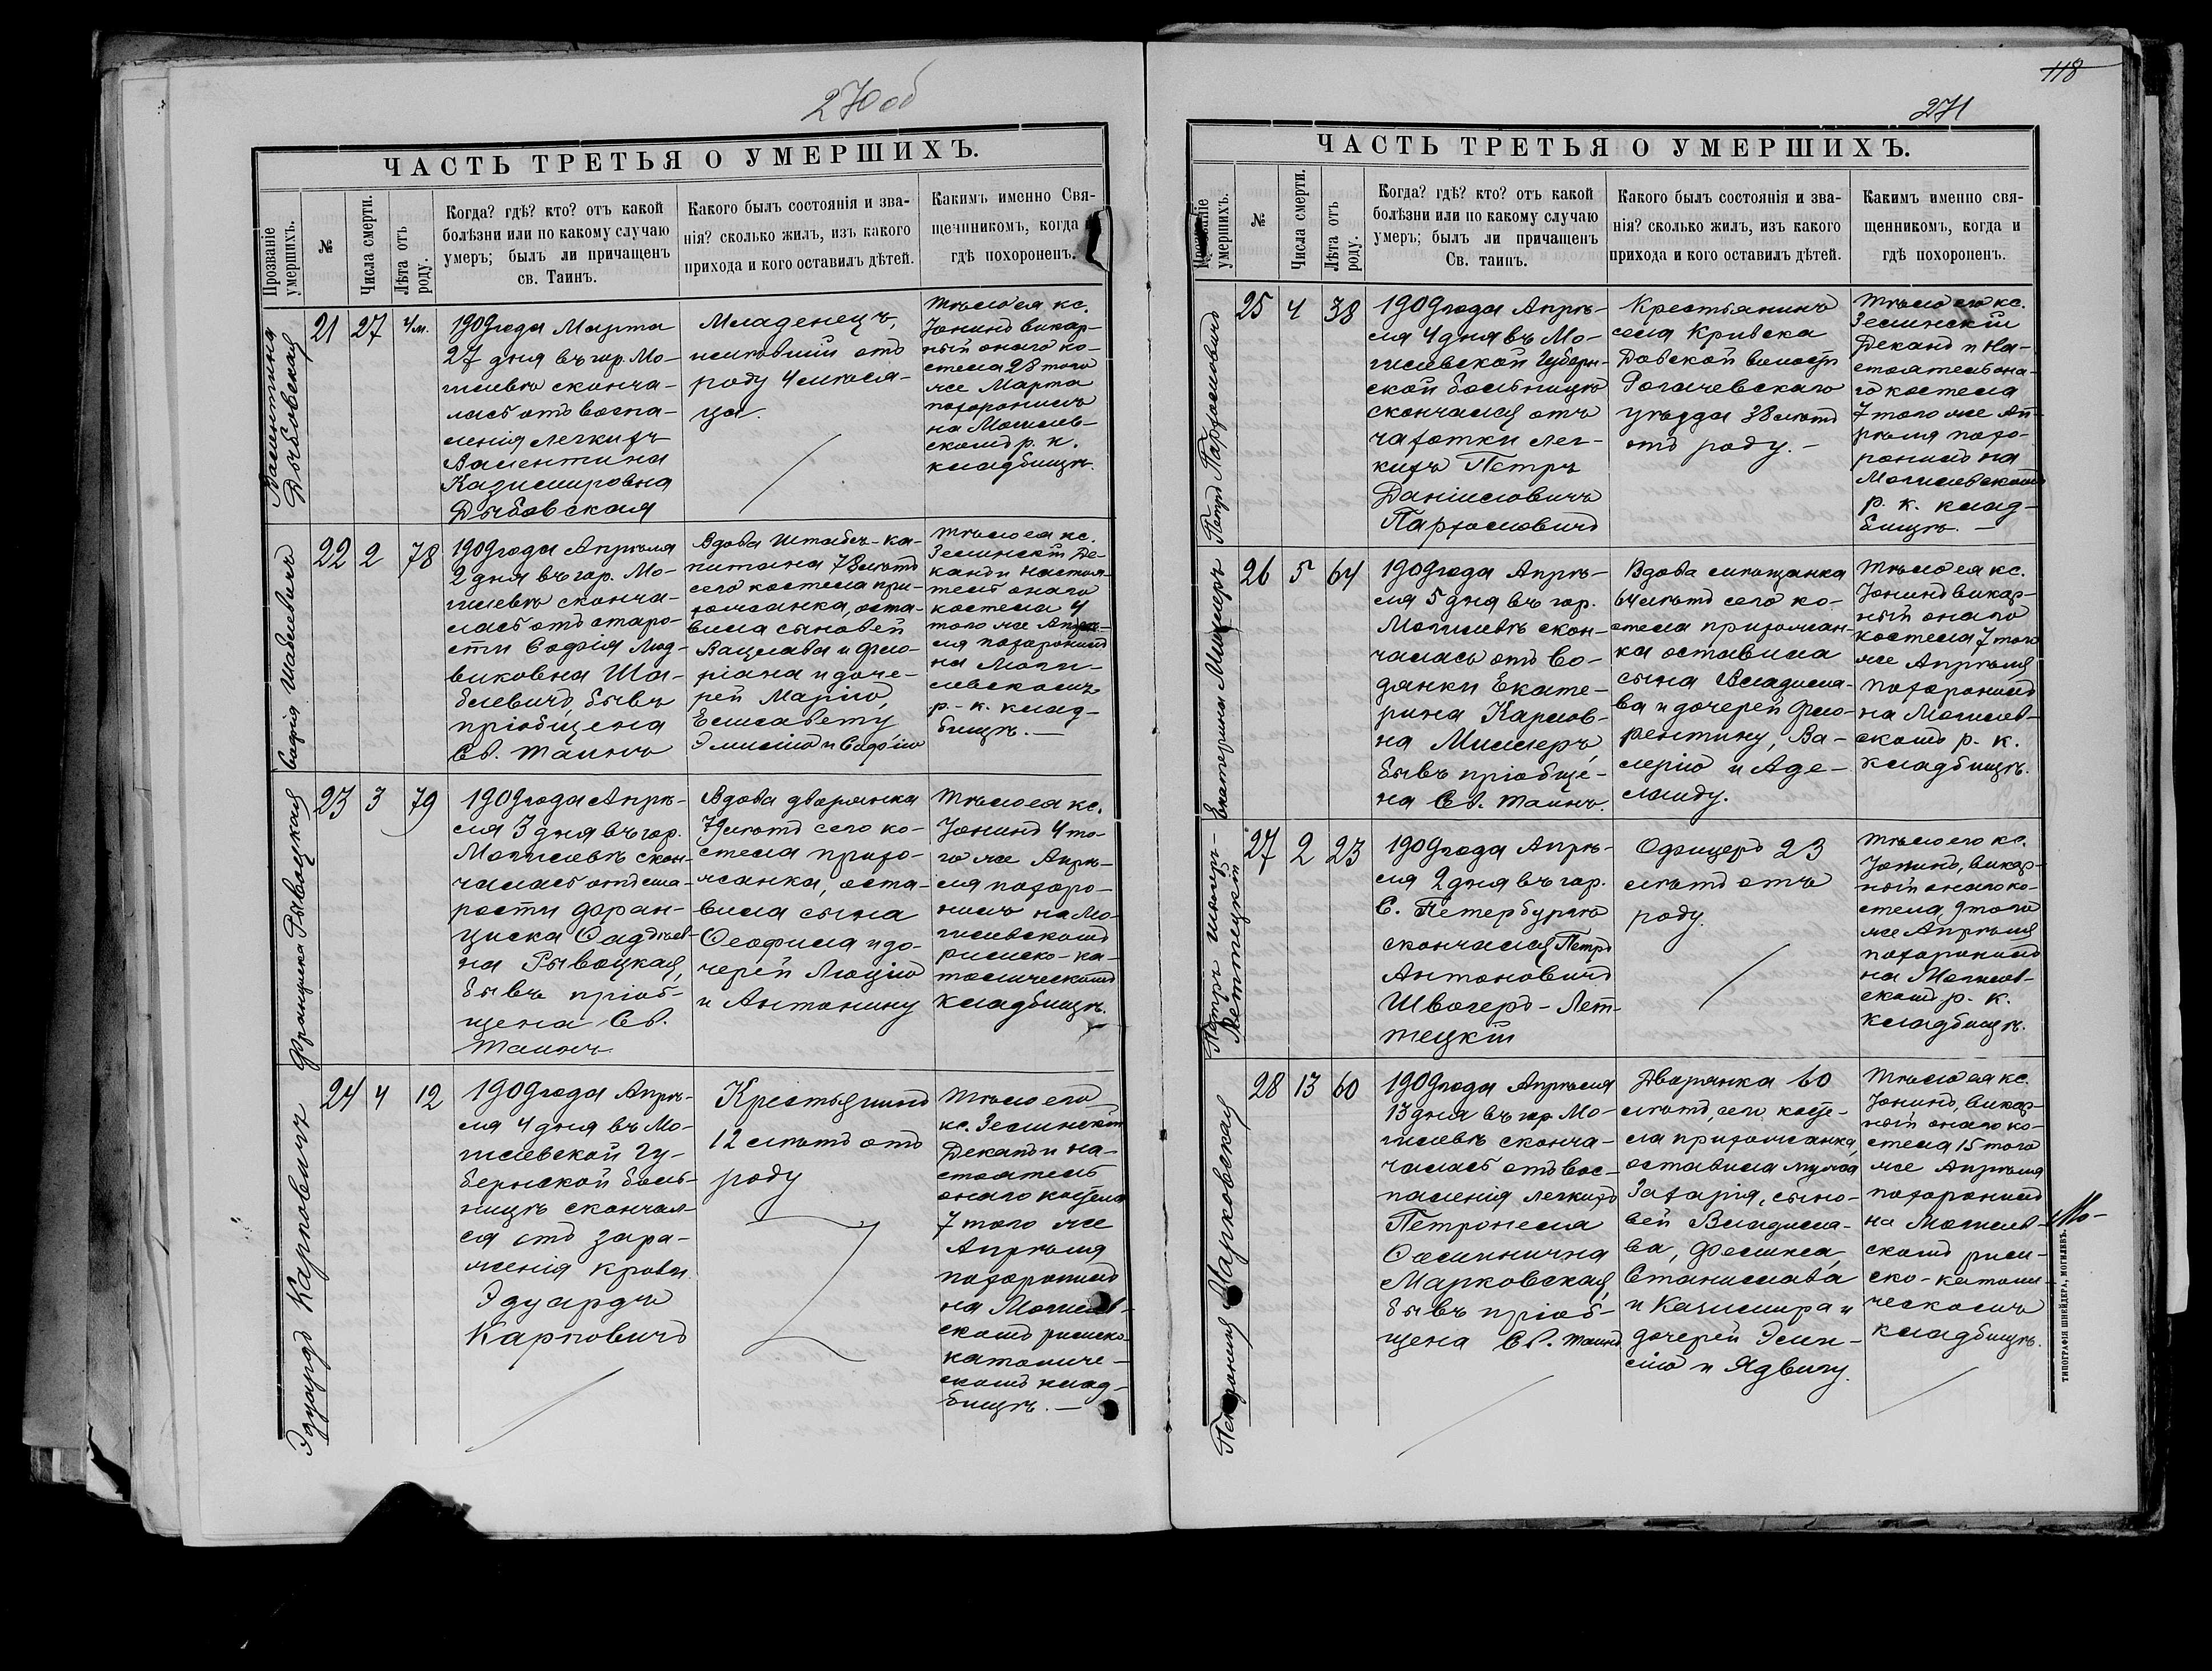 270 об
ЧАСТЬ ТРЕТЬЯ О УМЕРШИХЪ.
Прозваніе умершихъ.
№
Числа смерти.
Лѣта отъ роду.
Когда? гдѣ? кто? отъ какой
болѣзни или по какому случаю
умеръ; былъ ли причащенъ
св. Таинъ.
Какого былъ состоянія и зва-
нія? сколько жилъ, изъ какого
прихода и кого оставилъ дѣтей.
Каким именно Свя-
щенникомъ, когда и
гдѣ похороненъ.
Валентина
Дыбовская
21
27
4 м.
1909 года Марта
27 дня въ гор. Мо-
гилевѣ сконча-
лась отъ воспа-
ленія легкихъ
Валентина
Казимировна
Дыбовская
Младенецъ,
имѣвшій отъ
роду 4 мѣся-
ца.
Тѣло ея кс.
Іонинъ викар-
ный онаго ко-
стела 28 того
же Марта
похоронилъ
на Могилев-
скомъ р. к.
кладбищѣ.
Софія Шаблевичъ
22
2
78
1909 года Апрѣля
2 дня въ гор. Мо-
гилевѣ сконча-
лась отъ старо-
сти Софія Люд-
виковна Ша-
блевичъ, бывъ
пріобщена
Св. Таинъ
Вдова Штабсъ-ка-
питана 78 лѣтъ
сего костела при-
хожанка, оста-
вила сыновей
Вацлава и Фло-
ріана и доче-
рей Марію,
Елисавету
Эмилію и Софію
Тѣло ея кс.
Зелинскій Де-
канъ и Настоя-
тель онаго
костела 4
того же Апрѣ-
ля похоронилъ
на Моги-
левскомъ
р.-к. клад-
бищѣ. —
Франциска Рывоцкая
23
3
79
1909 года Апрѣ-
ля 3 дня въ гор.
Могилевѣ скон-
чалась отъ ста-
рости Фран-
циска Фаддѣев-
на Рывоцкая,
бывъ пріоб-
щена Св.
Таинъ
Вдова дворянка
79 лѣтъ сего ко-
стела прихо-
жанка, оста-
вила сына
Феофила и до-
черей Люцію
и Антонину
Тѣло ея кс.
Іонинъ 4 то-
го же Апрѣ-
ля похоро-
нилъ на Мо-
гилевскомъ
римско-ка-
толическомъ
кладбищѣ.
Эдуардъ Карповичъ
24
4
12
1909 года Апрѣ-
ля 4 дня въ Мо-
гилевской Гу-
бернской боль-
ницѣ скончал-
ся отъ зара-
женія крови
Эдуардъ
Карповичъ
Крестьянинъ
12 лѣтъ отъ
роду
Тѣло его
кс. Зелинскій
Деканъ и на-
стоятель
онаго костела
7 того же
Апрѣля
похоронилъ
на Могилев-
скомъ римско-
католиче-
скомъ клад-
бищѣ. —
118
271
ЧАСТЬ ТРЕТЬЯ О УМЕРШИХЪ.
Прозваніе умершихъ.
№
Числа смерти.
Лѣта отъ роду.
Когда? гдѣ? кто? отъ какой
болѣзни или по какому случаю
умеръ; былъ ли причащенъ
Св. таинъ.
Какого былъ состоянія и зва-
нія? сколько жилъ, изъ какого
прихода и кого оставилъ дѣтей.
Каким именно свя-
щенникомъ, когда и
гдѣ похороненъ.
Петръ Пархомовичъ
25
4
38
1909 года Апрѣ-
ля 4 дня въ Мо-
гилевской Губерн-
ской больницѣ
скончался отъ
чахотки лег-
кихъ Петръ
Даніиловичъ
Пархомовичъ
Крестьянинъ
села Кривска
Довской волости
Рогачевскаго
уѣзда 38 лѣтъ
отъ роду. —
Тѣло его кс.
Зелинскій
Деканъ и На-
стоятель она-
го костела
7 того же Ап-
рѣля похо-
ронилъ на
Могилевскомъ
р. к. клад-
бищѣ. —
Екатерина Миллеръ
26
5
64
1909 года Апрѣ-
ля 5 дня въ гор.
Могилевѣ скон-
чалась отъ во-
дянки Екате-
рина Карлов-
на Миллеръ,
бывъ пріобще-
на Св. Таинъ.
Вдова мѣщанка
64 лѣтъ сего ко-
стела прихожан-
ка оставила
сына Владисла-
ва и дочерей Фло-
рентину, Ва-
лерію и Аде-
лаиду.
Тѣло ея кс.
Іонинъ викар-
ный онаго
костела 7 того
же Апрѣля
похоронилъ
на Могилев-
скомъ р. к.
кладбищѣ.
Петръ Швогеръ-
Леттецкій
27
2
23
1909 года Апрѣ-
ля 2 дня въ гор.
С. Петербургѣ
скончался Петръ
Антоновичъ
Швогеръ-Лет-
тецкій
Офицеръ 23
лѣтъ отъ
роду.
Тѣло его кс.
Іонинъ, викар-
ный онаго ко-
стела, 9 того
же Апрѣля
похоронилъ
на Могилев-
скомъ р. к.
кладбищѣ.
Петронелия Марковская
28
13
60
1909 года Апрѣля
13 дня въ гор. Мо-
гилевѣ сконча-
чалась отъ вос-
паленія легкихъ
Петронела
Осиповна
Марковская,
бывъ пріоб-
щена Св. Таинъ
Дворянка 60
лѣтъ, сего косте-
ла прихожанка,
оставила мужа
Захарія, сыно-
вей Владисла-
ва, Феликса,
Станислава
и Казимира и
дочерей Эми-
лію и Ядвигу.
Тѣло ея кс.
Іонинъ, викар-
ный онаго ко-
стела 15 того
же Апрѣля
похоронилъ
на Могилев-
скомъ рим-
ско-католи-
ческомъ
кладбищѣ.
ТИПОГРАФІЯ ШНЕЙДЕРА, МОГИЛЕВЪ.